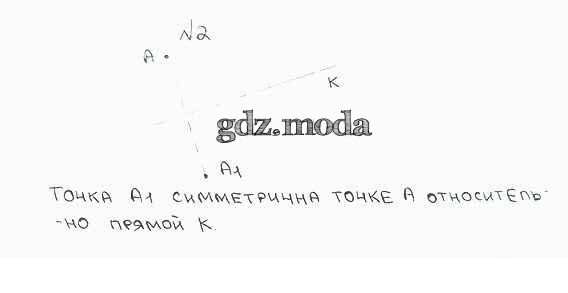 №2
A
K
gdz.moda
A1
ТОЧКА A1 СИММЕТРИЧНА ТОЧКЕ A ОТНОСИТЕЛЬ-
-НО ПРЯМОЙ K.